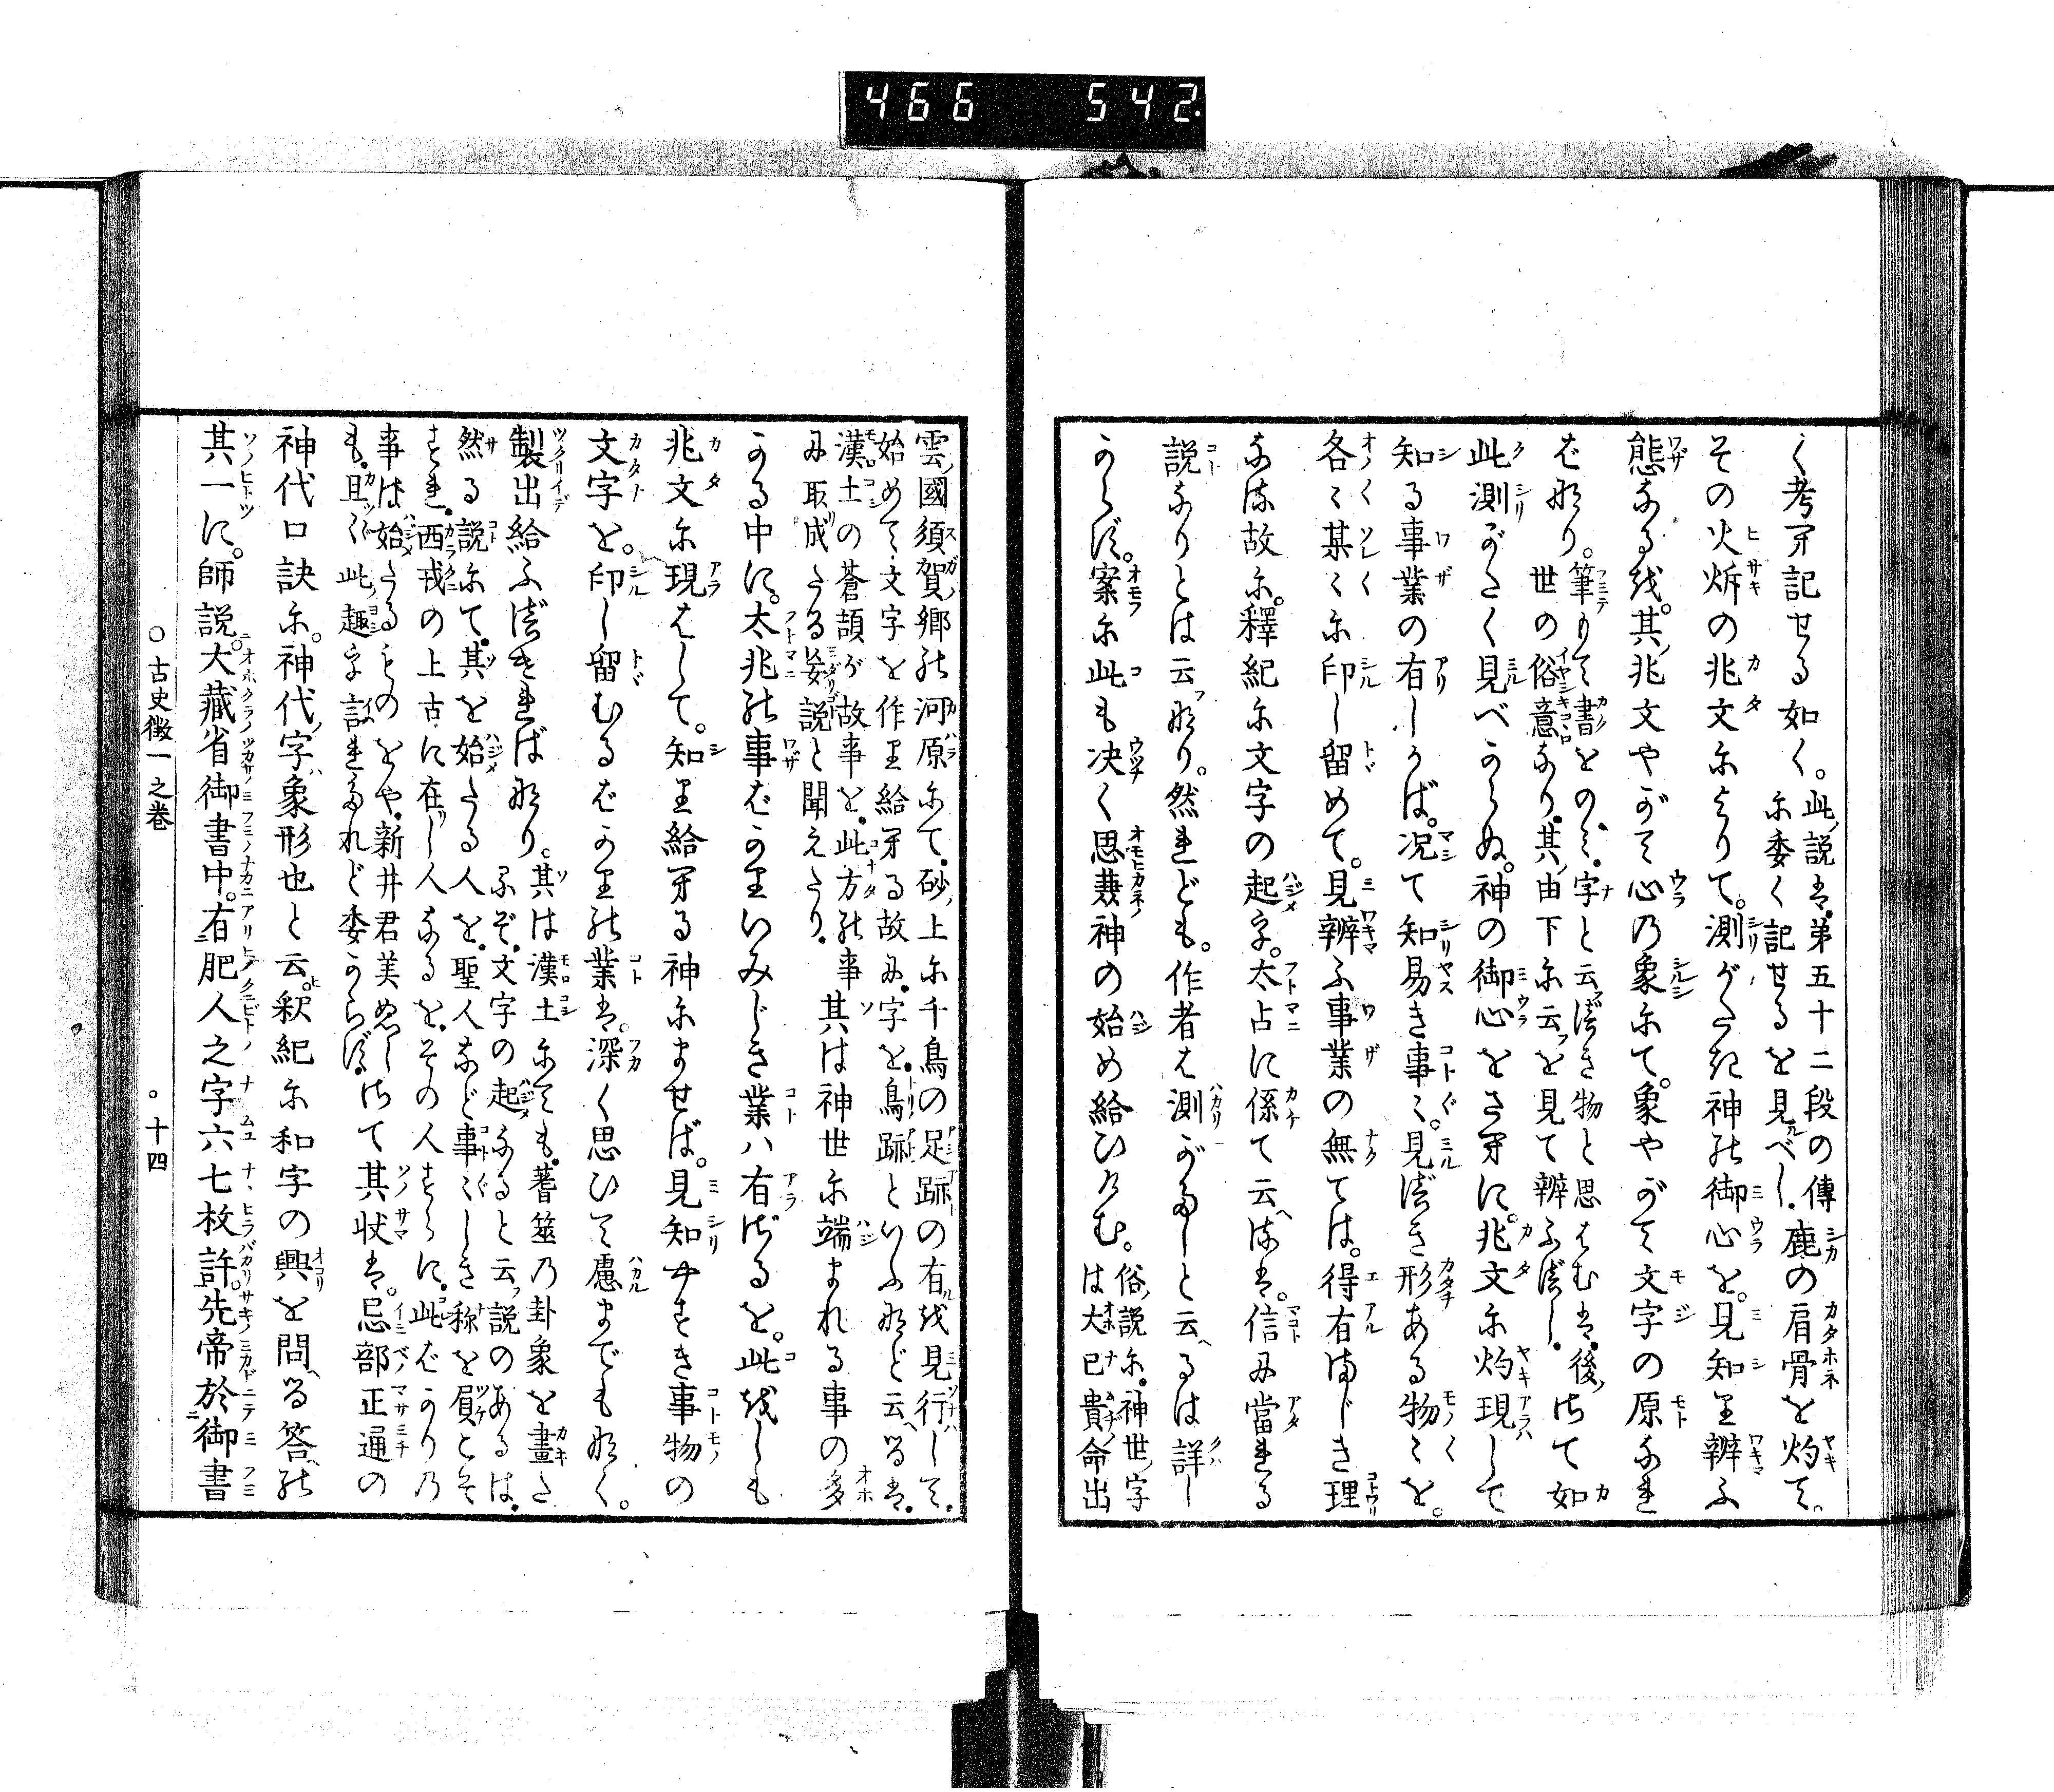 466 542
く考へ記せる如く。此ノ説は、第五十二段の傳に委く記せるを見ルべし、鹿の肩骨を灼て。
その火焃の兆文によりて。測がたき神の御心を。見知り辨ふ
態なるを。其ノ兆文やがて心の象にて。象やがて文字の原なれ
ばなり。筆もて書をのみ、字と云フべき物と思はむは、後ノ世の俗意なり、其ノ由下に云フを見て辨ふべし、さて如
此測がたく見べからぬ。神の御心をさへに。兆文に灼現して
知る事業の有しかば。况て知易き事ゞ。見べき形ある物〻を。
各〻某〻に印し留めて。見辨ふ事業の無ては。得有まじき理
なる故に。釋紀に文字の起を。太占に係て云へるは。信に當れる
説なりとは云フなり。然れども。作者は測がたしと云へるは詳し
からず。案に此も决く思兼神の始め給ひけむ。俗ノ説に、神世ノ字は大已貴命出
雲ノ國須賀ノ郷の河原にて、砂ノ上に千鳥の足跡の有ルを見行して、始めて文字を作り給へる故に、字を、鳥ノ跡といふなど云へるは、
漢土の蒼頡が故事を、此方の事に取成たる妄説と聞えたり、其は神世に端まれる事の多
かる中に。太兆の事ばかりいみじき業ハ有ざるを。此をしも
兆文に現はして。知り給へる神にませば。見知やすき事物の
文字を。印し留むるばかりの業は。深く思ひて慮までもなく。
製出給ふべければなり。其は漢土にても、蓍筮の卦象を畫たるぞ、文字の起なると云フ説のあるは、
然る説にて、其を始たる人を、聖人など事〻しき稱を屓こそすれ、西戎の上古に在し人なるを、その人すらに、此ばかりの
事は始たるものをや、新井君美ぬしも、且〻此ノ趣を言れたれど委からず、さて其状は。忌部正通の
神代口訣に。神代ノ字ハ象形也と云ヒ。釈紀に和字の興を問へる答への
其一に。師説。大藏省御書中。有肥人之字六七枚許。先帝於御書
○古史徴一之巻 ○十四